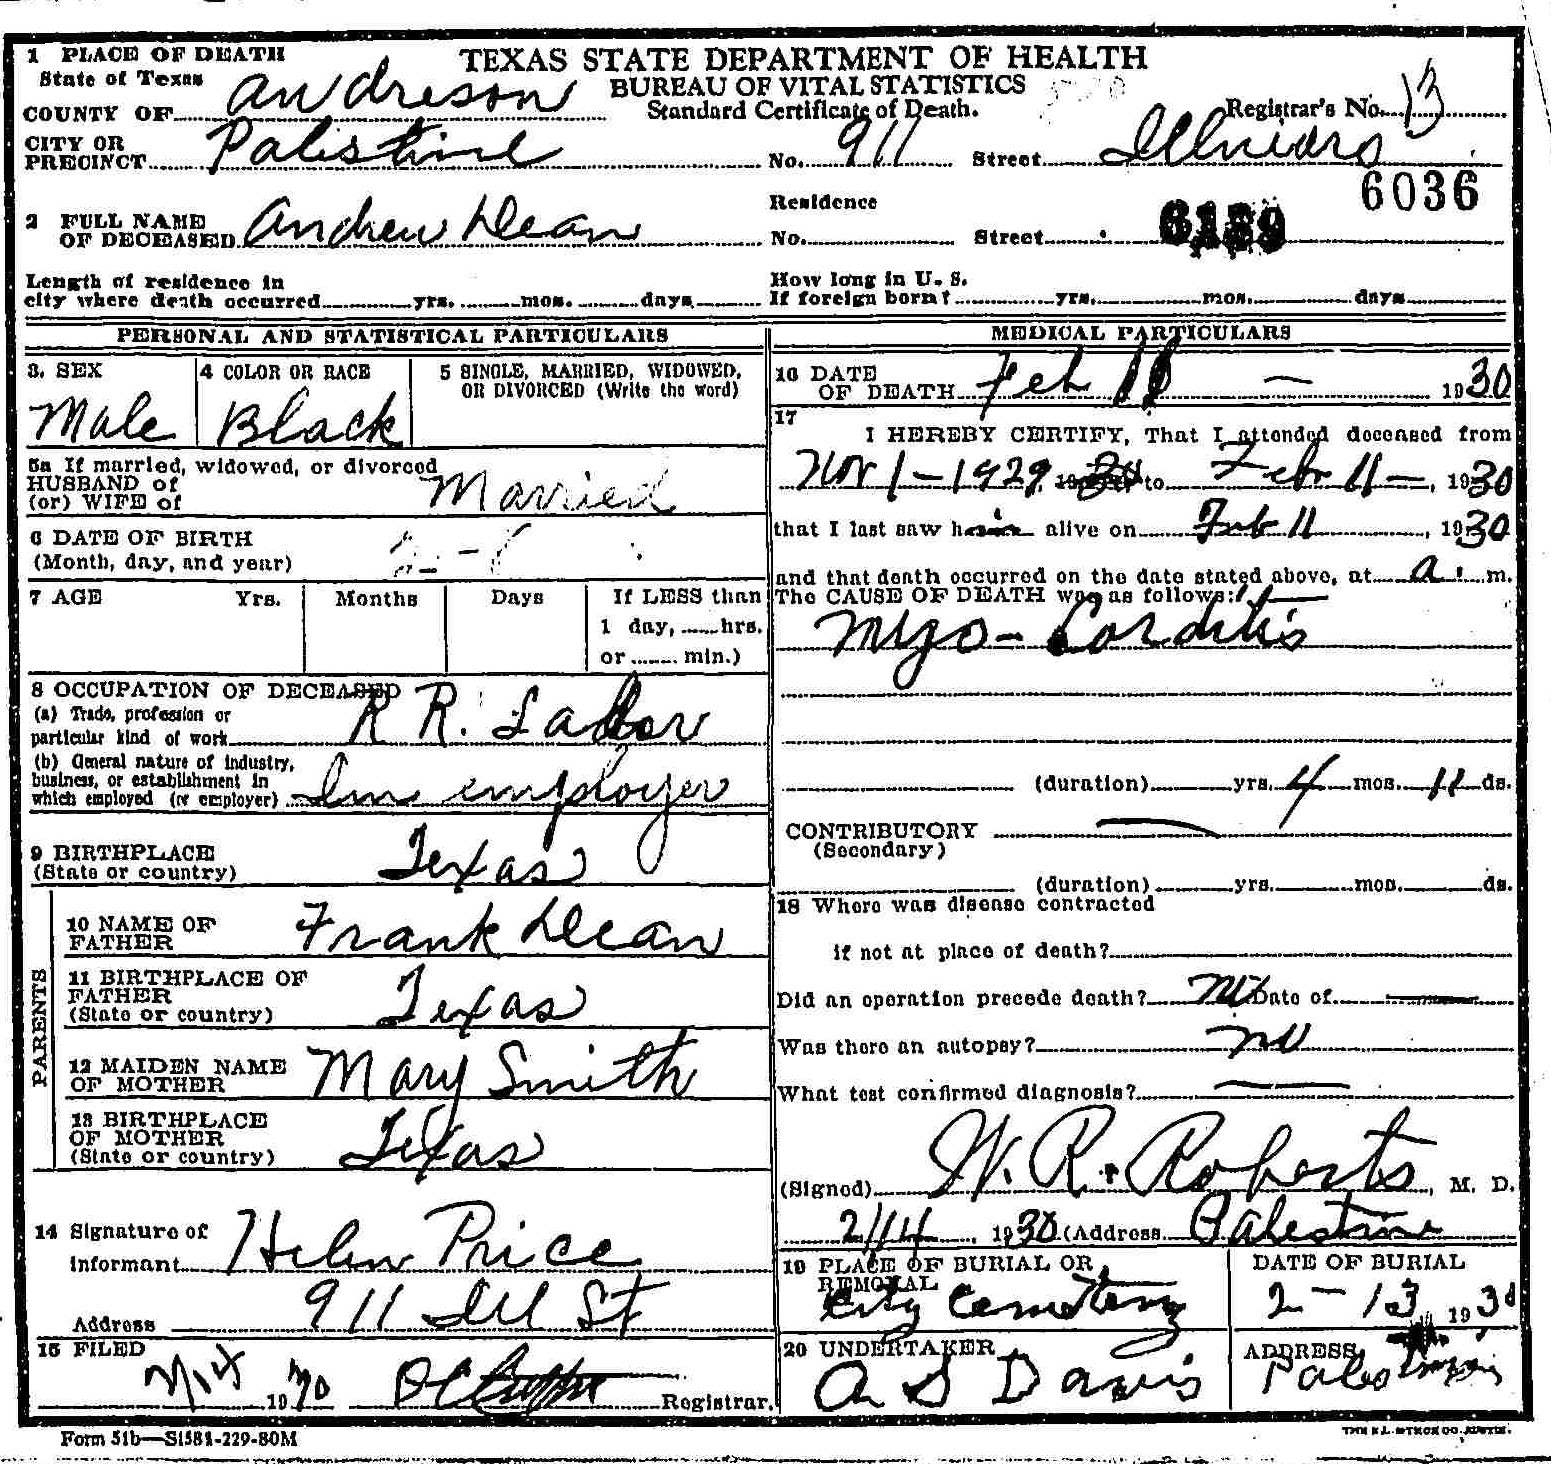 1 PLACE OF DEATH
TEXAS STATE DEPARTMENT OF HEALTH
State of Texas
BUREAU OF VITAL STATISTICS
COUNTY OF Andreson
Standard Certificate of Death.
Registrar's No. 13
CITY OR
PRECINCT Palestine No. 911 Street
6036
2 FULL NAME
OF DECEASED Andrew Dean
Residence
No. Street
Length of residence in
city where death occurred yrs. mos. days
How long in U. S.
If foreign born? yrs. mos. days
PERSONAL AND STATISTICAL PARTICULARS
3. SEX
Male
4 COLOR OR RACE
Black
5 SINGLE, MARRIED, WIDOWED,
OR DIVORCED (Write the word)
5a If married, widowed, or divorced
HUSBAND of
(or) WIFE of
Married
6 DATE OF BIRTH
(Month, day, and year)
7 AGE Yrs. Months Days If LESS than
1 day, hrs.
or min.)
8 OCCUPATION OF DECEASED
(a) Trade, profession or
particular kind of work R R. Labor
(b) General nature of industry,
business, or establishment in
which employed (or employer) employer
9 BIRTHPLACE
(State or country) Texas
PARENTS
10 NAME OF
FATHER Frank Dean
11 BIRTHPLACE OF
FATHER
(State or country) Texas
12 MAIDEN NAME
OF MOTHER Mary Smith
13 BIRTHPLACE
OF MOTHER
(State or country) Texas
14 Signature of
Informant Helen Price
Address 911 Ill St
15 FILED
19 Registrar.
MEDICAL PARTICULARS
16 DATE
OF DEATH Feb 11 — 1930
17
I HEREBY CERTIFY, That I attended deceased from
Nov 1 - 1929, 19 to Feb 11 —, 1930
that I last saw him alive on Feb 11, 1930
and that death occurred on the date stated above, at a. m.
The CAUSE OF DEATH was as follows:
Myo - Carditis
(duration) yrs. 4 mos. 11 ds.
CONTRIBUTORY
(Secondary)
(duration) yrs. mos. ds.
18 Where was disease contracted
if not at place of death?
Did an operation precede death? no Date of
Was there an autopsy? no
What test confirmed diagnosis?
(Signed) W. R. Roberts, M. D.
2/14, 1930 (Address Palestine
19 PLACE OF BURIAL OR
REMOVAL
City Cemetery
DATE OF BURIAL
2 - 13 1930
20 UNDERTAKER
A S Davis
ADDRESS
Palestine
Form 51b—S1581-229-80M